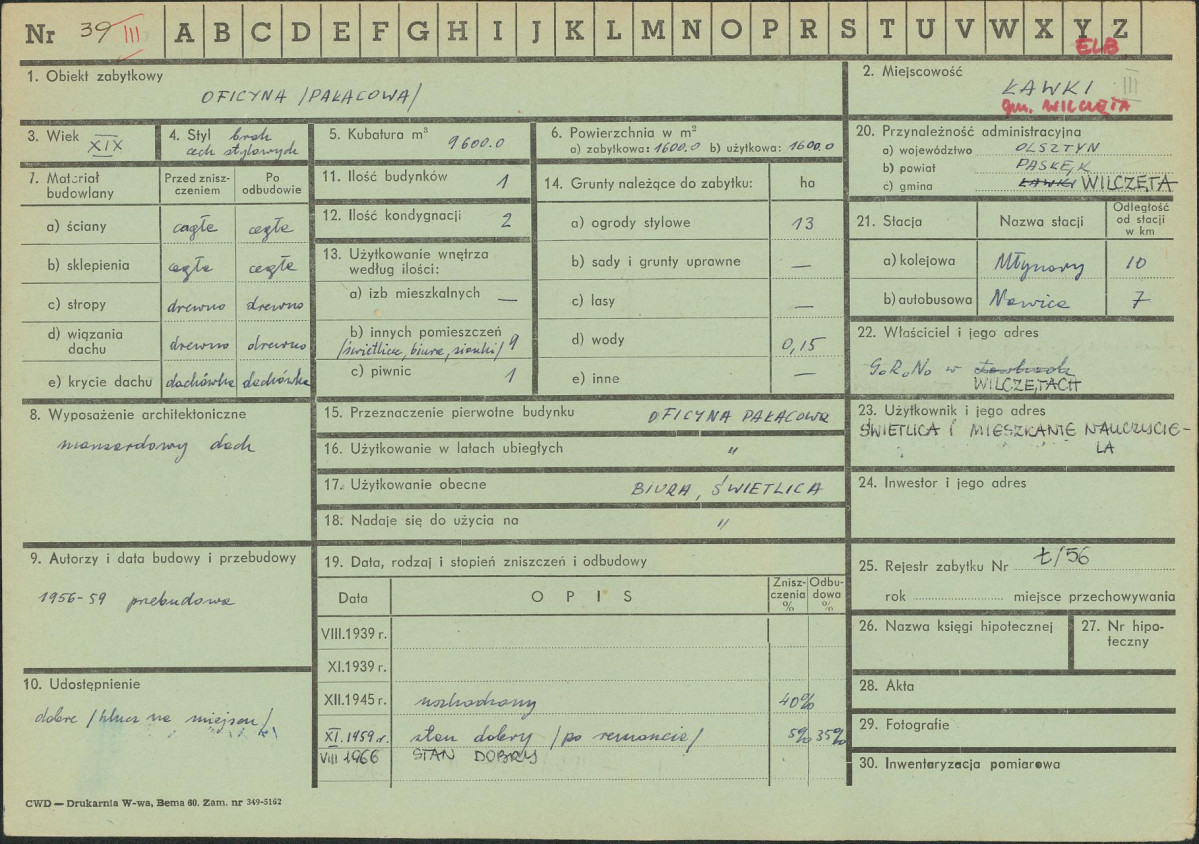 Nr 39 III A B C D E F G H I J K L M N O P R S T U V W X Y Z
ELB
1. Obiekt zabytkowy
OFICYNA /PAŁACOWA/
2. Miejscowość
ŁAWKI III
gm. WILCZĘTA
3. Wiek XIX
4. Styl brak
cech stylowych
5. Kubatura m³
9600.0
6. Powierzchnia w m²
a) zabytkowa: 1600.0 b) użytkowa: 1600.0
20. Przynależność administracyjna
a) województwo OLSZTYN
b) powiat PASŁĘK
c) gmina ŁAWKI WILCZĘTA
7. Materiał budowlany
Przed zniszczeniem
Po odbudowie
a) ściany cegła cegła
b) sklepienia cegła cegła
c) stropy drewno drewno
d) wiązania dachu drewno drewno
e) krycie dachu dachówka dachówka
11. Ilość budynków 1
12. Ilość kondygnacji 2
13. Użytkowanie wnętrza
według ilości:
a) izb mieszkalnych —
b) innych pomieszczeń
/świetlica, biura, sionki/ 9
c) piwnic 1
14. Grunty należące do zabytku: ha
a) ogrody stylowe 13
b) sady i grunty uprawne —
c) lasy —
d) wody 0,15
e) inne —
21. Stacja
Nazwa stacji
Odległość
od stacji
w km
a) kolejowa Młynary 10
b) autobusowa Nawica 7
22. Właściciel i jego adres
G.R.N. w
WILCZĘTACH
8. Wyposażenie architektoniczne
mansardowy dach
15. Przeznaczenie pierwotne budynku OFICYNA PAŁACOWA
16. Użytkowanie w latach ubiegłych "
17. Użytkowanie obecne BIURA, ŚWIETLICA
18. Nadaje się do użycia na "
23. Użytkownik i jego adres
ŚWIETLICA I MIESZKANIE NAUCZYCIE-
LA
24. Inwestor i jego adres
9. Autorzy i data budowy i przebudowy
1956-59 przebudowa
19. Data, rodzaj i stopień zniszczeń i odbudowy
Data
O P I S
Znisz-
czenia
%
Odbu-
dowa
%
VIII.1939 r.
XI.1939 r.
XII.1945 r. uszkodzony 40%
XI.1959 r. stan dobry /po remoncie/ 5% 35%
VIII 1966 STAN DOBRY
25. Rejestr zabytku Nr Ł/56
rok miejsce przechowywania
26. Nazwa księgi hipotecznej
27. Nr hipo-
teczny
10. Udostępnienie
dobre /klucz na miejscu/
28. Akta
29. Fotografie
30. Inwentaryzacja pomiarowa
CWD — Drukarnia W-wa, Bema 60. Zam. nr 349-5162